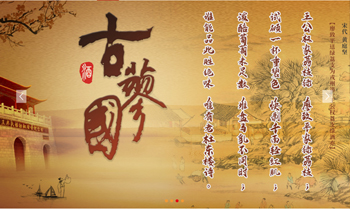 宋代 黄庭坚
王公权家荔枝绿，廖致平家绿荔枝。
试倾一杯重碧色，快剥千颗轻红肌。
泼醅葡萄未足数，堆盘马乳不同时。
谁能品此胜绝味，唯有老杜东楼诗。
古蓼國
酒